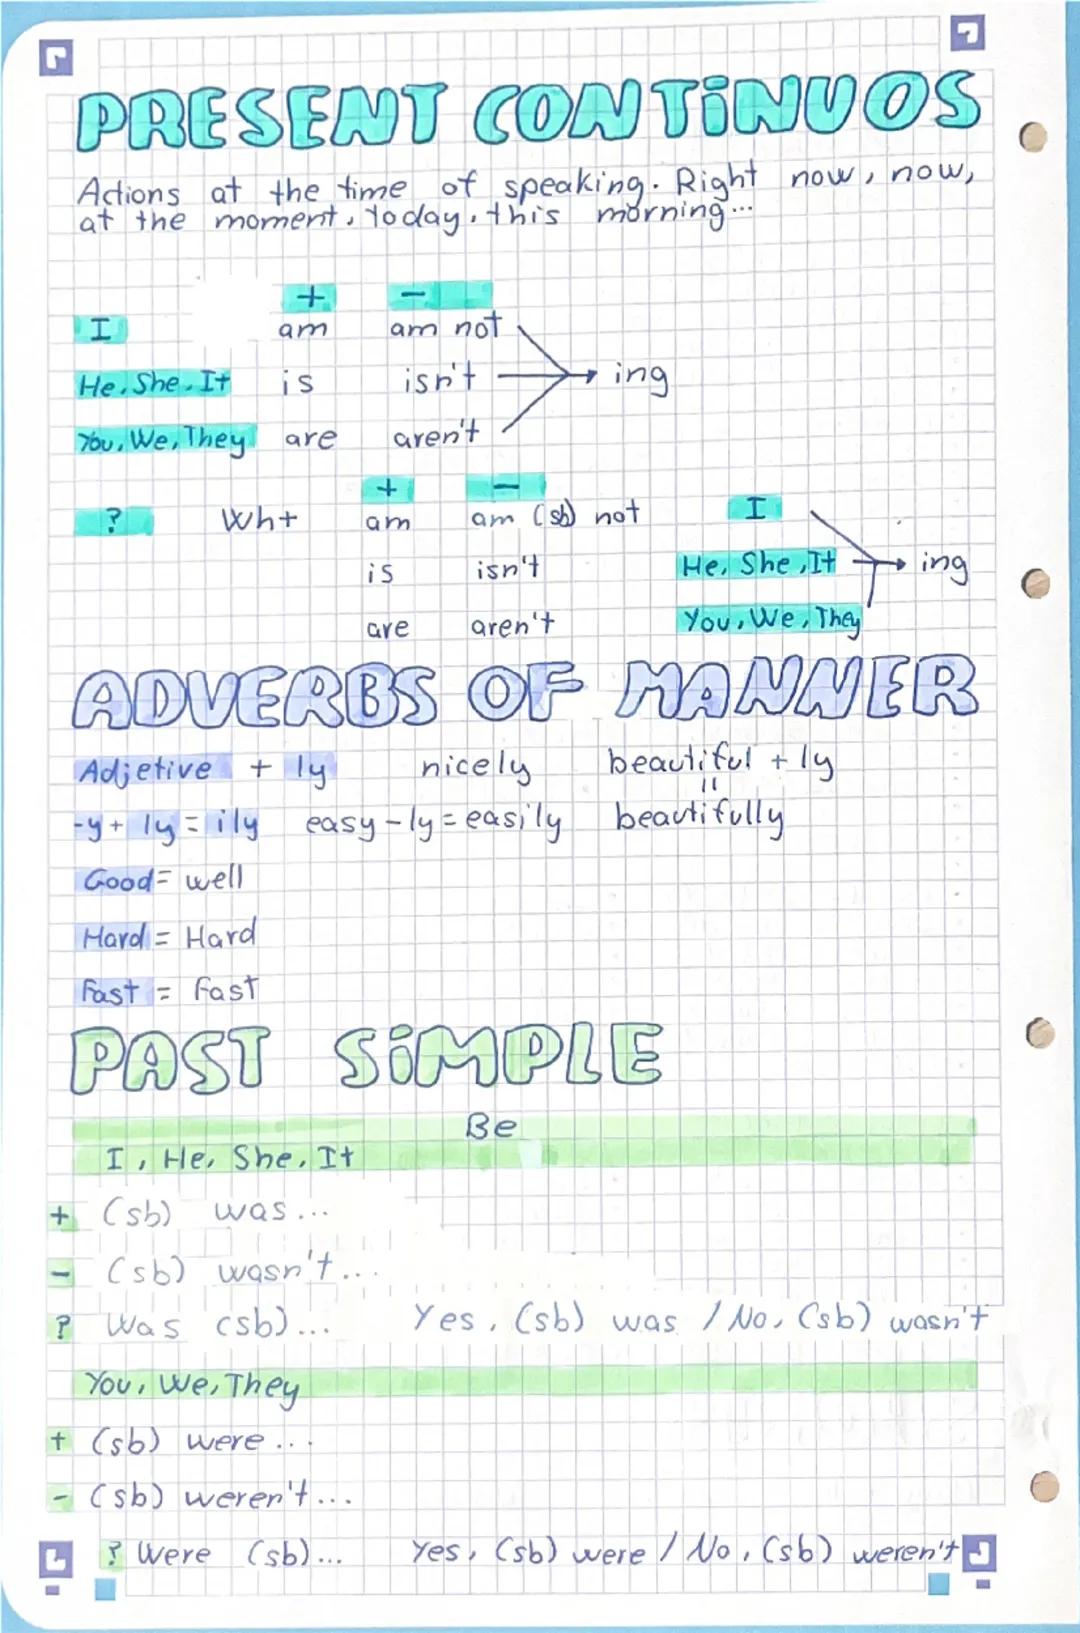 PRESENT CONTiNUOS
Actions at the time of speaking. Right now, now,
at the moment, today, this morning...
+ -
I am am not
He, She, It is isn't ing
You, We, They are aren't
+ -
? Wh+ am am (sb) not I
is isn't He, She, It ing
are aren't You, We, They
ADVERBS OF MANNER
Adjetive + ly nicely beautiful + ly
=
-y + ly = ily easy-ly = easily beautifully
Good = well
Hard = Hard
Fast = fast
PAST SiMPLE
Be
I, He, She, It
+ (sb) was...
- (sb) wasn't...
? Was (sb)... Yes, (sb) was / No, (sb) wasn't
You, We, They
+ (sb) were...
- (sb) weren't...
? Were (sb)... Yes, (sb) were / No, (sb) weren't